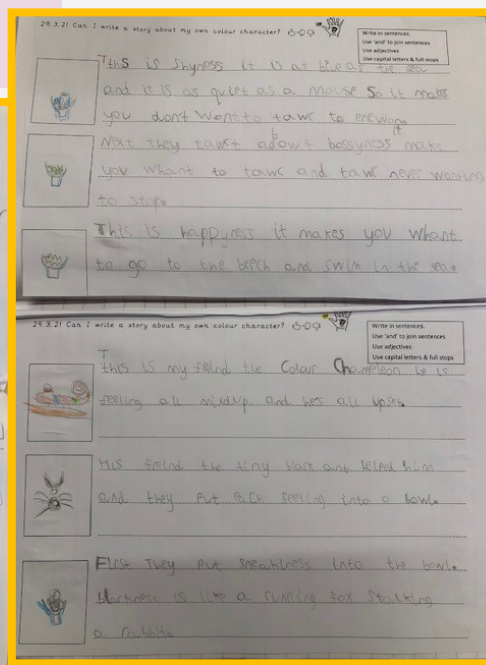 29.3.21 Can I write a story about my own colour character?
Write in sentences
Use 'and' to join sentences
Use adjectives
Use capital letters & full stops
This is shyness it is as blue as the sea
and it is as quiet as a mouse So it makes
you dont want to tawc to
Next they tawct abowt bossyness it maks
you whant to tawc and tawc never wonting
to stop.
This is happyness it makes you whant
to go to the beech and swim in the sea.
29.3.21 Can I write a story about my own colour character?
Write in sentences.
Use 'and' to join sentences
Use adjectives
Use capital letters & full stops
This is my freind the Colour Chameleon he is
feeling all mixdup and hes all upset.
His freind the tiny black ant helpd him
and they put each feeling into a bowl.
First They put sneakiness into the bowl.
is like a running fox stalking
a rabbit.